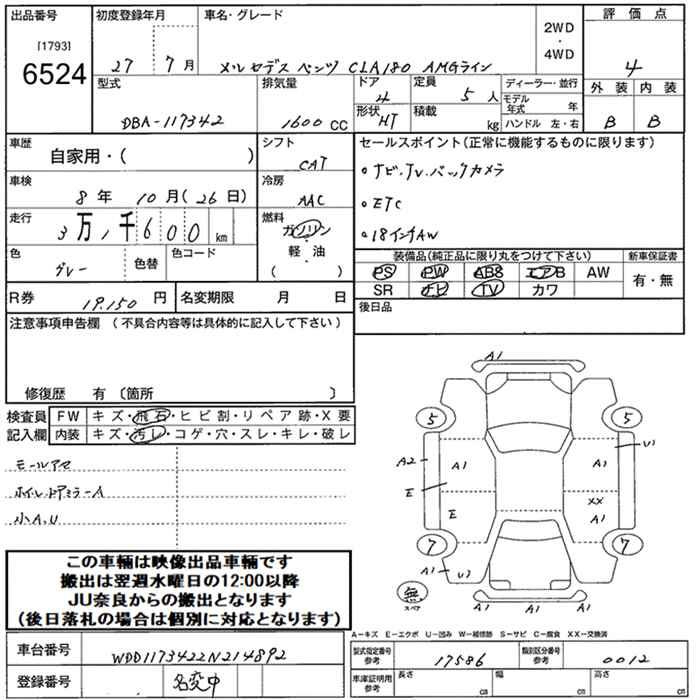 出品番号 初度登録年月 車名・グレード 2WD・4WD 評価点
[1793]
6524 27 7月 メルセデスベンツ CLA180 AMGライン 4
型式 排気量 ドア 4 定員 5人 ディーラー・並行 外装 内装
DBA-117342 1600 CC 形状 HT 積載 kg モデル年式 年 B B
ハンドル 左・右
車歴 自家用・( ) シフト CAT セールスポイント(正常に機能するものに限ります)
車検 8年 10月(26日) 冷房 AAC ・ナビ.TV.バックカメラ
・ETC
走行 3万,千600km 燃料 ガソリン・軽油・( ) ・18インチAW
色 グレー 色替 色コード 装備品(純正品に限り丸をつけて下さい) 新車保証書
PS PW ABS エアB AW 有・無
R券 19.150円 名変期限 月 日 SR ナビ TV カワ
注意事項申告欄 (不具合内容等は具体的に記入して下さい) 後日品
修復歴 有〔箇所 〕
検査員 FW キズ・飛石・ヒビ割・リペア跡・X要
記入欄 内装 キズ・汚レ・コゲ・穴・スレ・キレ・破レ
モールアセ
ホイル.ドアミラーA
小A.U
A1
5 5
A2 A1 A1 U1
E
E XX A1
7 7
A1 U1
無 スペア
A1
この車輌は映像出品車輌です
搬出は翌週水曜日の12:00以降
JU奈良からの搬出となります
(後日落札の場合は個別に対応となります)
A-キズ E-エクボ U-凹み W-補修跡 S-サビ C-腐食 XX-交換済
車台番号 WDD1173422N214892 型式指定番号参考 17586 類別区分番号参考 0012
登録番号 名変中 車庫証明用参考 長さ cm 幅 cm 高さ cm